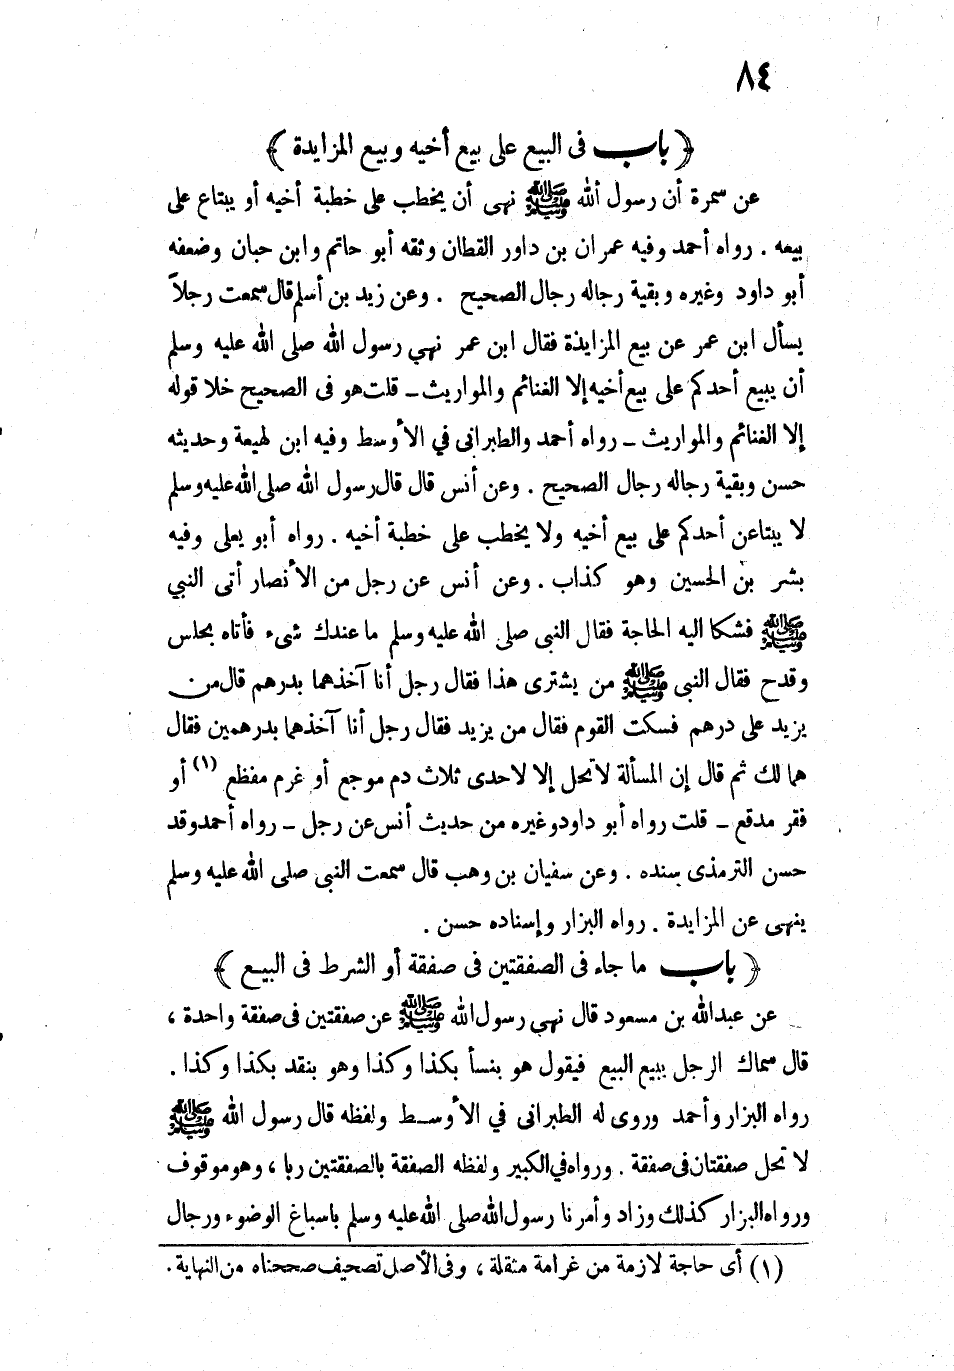 ٨٤
﴿ باب فى البيع على بيع أخيه وبيع المزايدة ﴾
عن سمرة أن رسول ألله ﷺ نهى أن يخطب على خطبة أخيه أو يبتاع على
بيعه . رواه أحمد وفيه عمران بن داور القطان وثقه أبو حاتم وابن حبان وضعفه
أبو داود وغيره وبقية رجاله رجال الصحيح . وعن زيد بن أسلم قال سمعت رجلاً
يسأل ابن عمر عن بيع المزايذة فقال ابن عمر نهي رسول الله صلى الله عليه وسلم
أن يبيع أحدكم على بيع أخيه إلا الغنائم والمواريث ــ قلت هو فى الصحيح خلا قوله
إلا الغنائم والمواريث ــ رواه أحمد والطبرانى في الأوسط وفيه ابن لهيعة وحديثه
حسن وبقية رجاله رجال الصحيح . وعن أنس قال قال رسول الله صلى الله عليه وسلم
لا يبتاعن أحدكم على بيع أخيه ولا يخطب على خطبة أخيه . رواه أبو يعلى وفيه
بشر بن الحسين وهو كذاب . وعن أنس عن رجل من الأنصار أتى النبي
ﷺ فشكا اليه الحاجة فقال النبى صلى الله عليه وسلم ما عندك شىء فأتاه بحلس
وقدح فقال النبى ﷺ من يشترى هذا فقال رجل أنا آخذهما بدرهم قال من
يزيد على درهم فسكت القوم فقال من يزيد فقال رجل أنا آخذهما بدرهمين فقال
هما لك ثم قال إن المسألة لا تحل إلا لاحدى ثلاث دم موجع أو غرم مفظع (١) أو
فقر مدقع ــ قلت رواه أبو داود وغيره من حديث أنس عن رجل ــ رواه أحمد وقد
حسن الترمذى سنده . وعن سفيان بن وهب قال سمعت النبى صلى الله عليه وسلم
ينهى عن المزايدة . رواه البزار وإسناده حسن .
﴿ باب ما جاء فى الصفقتين فى صفقة أو الشرط فى البيع ﴾
عن عبدالله بن مسعود قال نهي رسول الله ﷺ عن صفقتين فى صفقة واحدة ،
قال سماك الرجل يبيع البيع فيقول هو بنسأ بكذا وكذا وهو بنقد بكذا وكذا .
رواه البزار وأحمد وروى له الطبرانى في الأوسط ولفظه قال رسول الله ﷺ
لا تحل صفقتان فى صفقة . ورواه في الكبير ولفظه الصفقة بالصفقتين ربا ، وهو موقوف
ورواه البزار كذلك وزاد وأمرنا رسول الله صلى الله عليه وسلم باسباغ الوضوء ورجال
(١) أى حاجة لازمة من غرامة مثقلة ، وفى الأصل تصحيف صححناه من النهاية .